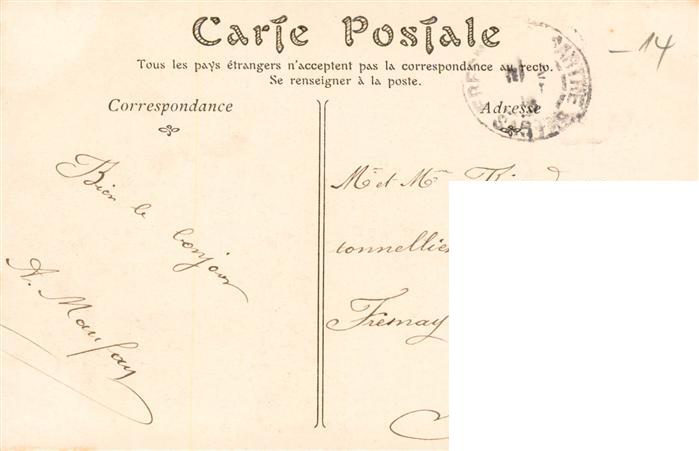 Carte Postale
Tous les pays étrangers n'acceptent pas la correspondance au recto.
Se renseigner à la poste.
Correspondance
Adresse
Bien le bonjour
A. Maufay
Mr et Mme
tonnellier
Fresnay
SARTHE
-14